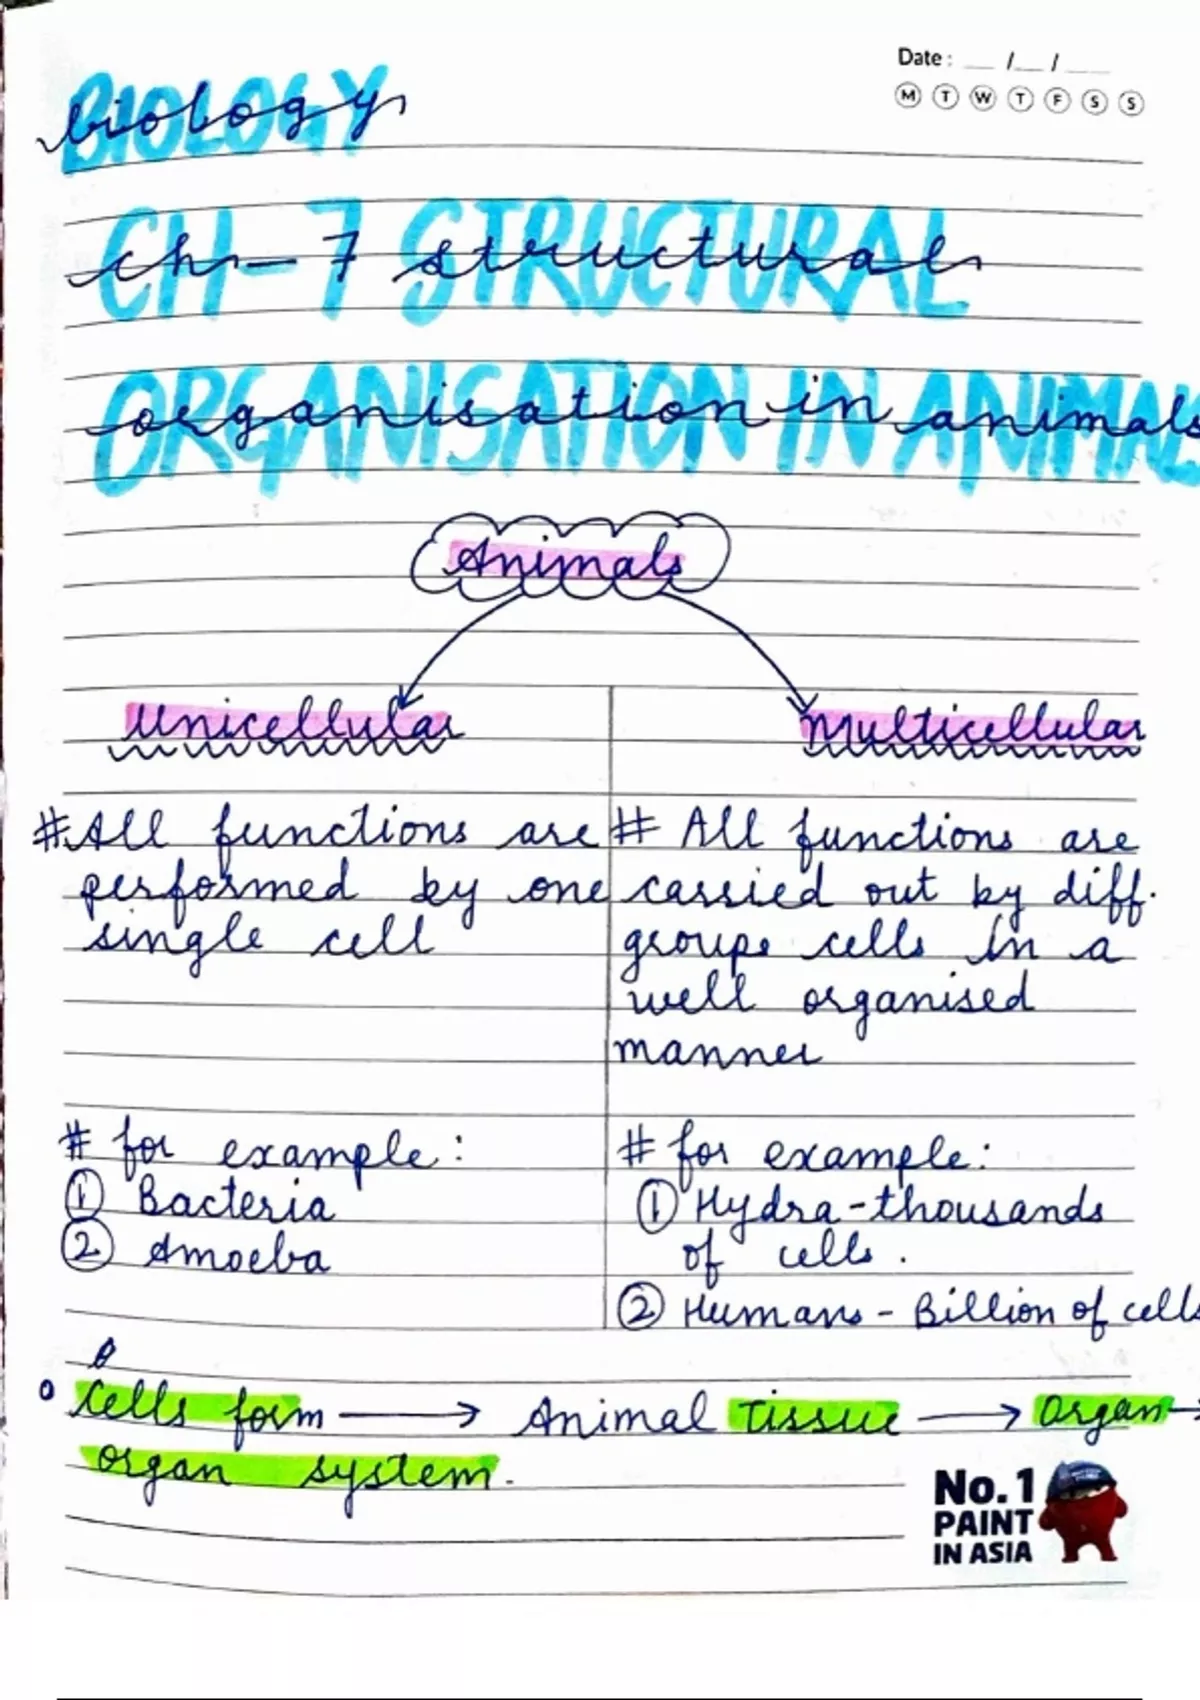 Date: __ /__ / ___
M T W T F S S
BIOLOGY
biology
CH-7 STRUCTURAL
ch-7 structural
ORGANISATION IN ANIMALS
organisation in animals
Animals
Unicellular
Multicellular
# All functions are
performed by one
single cell
# All functions are
carried out by diff.
groups cells in a
well organised
manner
# for example:
① Bacteria
② Amoeba
# for example:
① Hydra-thousands
of cells.
② Humans - Billion of cells
cells form → Animal tissue → organ →
organ system.
No.1
PAINT
IN ASIA